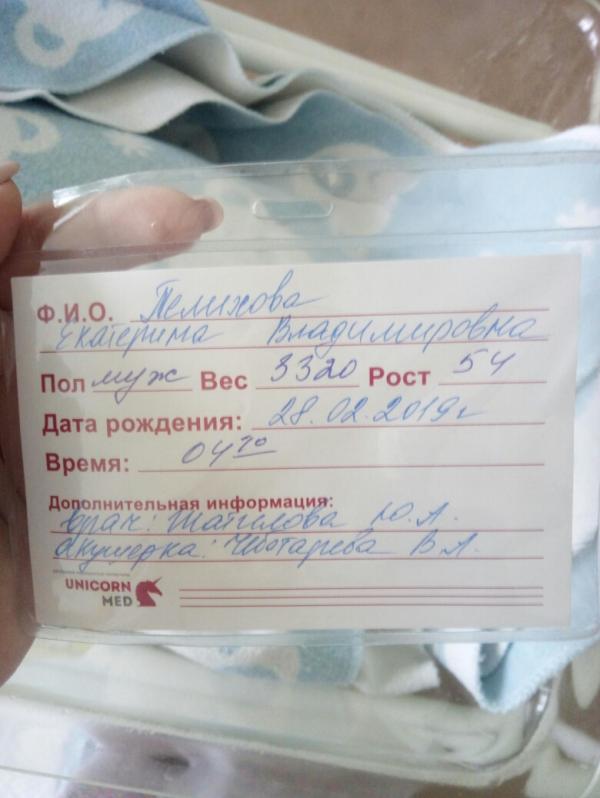 Ф.И.О. Пелихова
Екатерина Владимировна
Пол муж Вес 3320 Рост 54
Дата рождения: 28.02.2019г
Время: 04
Дополнительная информация:
врач: Шатилова Ю.А.
акушерка: Чеботарева В.А.
UNICORN
MED